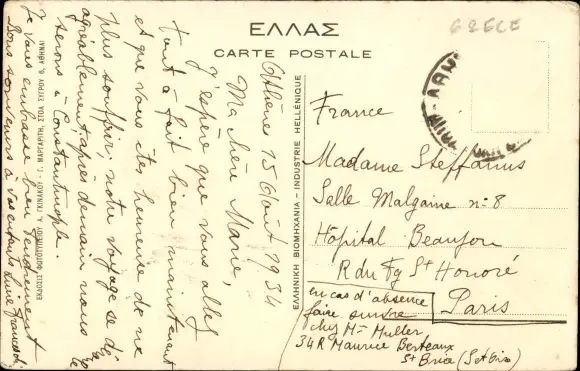 ΕΛΛΑΣ
CARTE POSTALE
GRECE
Athène 15 Août 1934
Ma chère Mane,
J'espère que vous allez
tout à fait bien maintenant
et que vous êtes heureuse de ne
plus souffrir; notre voyage se dé
roule
agréablement; après demain nous
serons à Constantinople.
Je vous embrasse bien tendrement
Bons souvenirs à vos enfants
ΕΛΛΗΝΙΚΗ ΒΙΟΜΗΧΑΝΙΑ - INDUSTRIE HELLÉNIQUE
ΕΚΔΟΣΙΣ ΦΩΤΟΤΥΠΕΙΟΥ Α. ΓΚΙΝΑΚΟΥ - Ι. ΜΑΡΓΑΡΙΤΗ, ΣΤΟΑ ΣΥΓΡΟΥ 8, ΑΘΗΝΑΙ
France
Madame Steffanus
Salle Malgaine n: 8
Hôpital Beaujon
R du Fg St Honoré
Paris
en cas d'absence
faire suivre
chez Mme Muller
34 R Maurice Berteaux
St Brice (Set Oise)